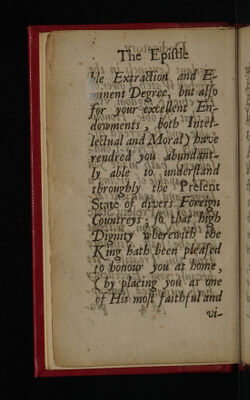 The Epiſtle
ble Extraction and E-
minent Degree, but alſo
for your excellent En-
dowments, both Intel-
lectual and Moral) have
rendred you abundant-
ly able to underſtand
throughly the Preſent
State of divers Foreign
Countreys; ſo that high
Dignity wherewith the
King hath been pleaſed
to honour you at home,
(by placing you as one
of His moſt faithful and
vi-